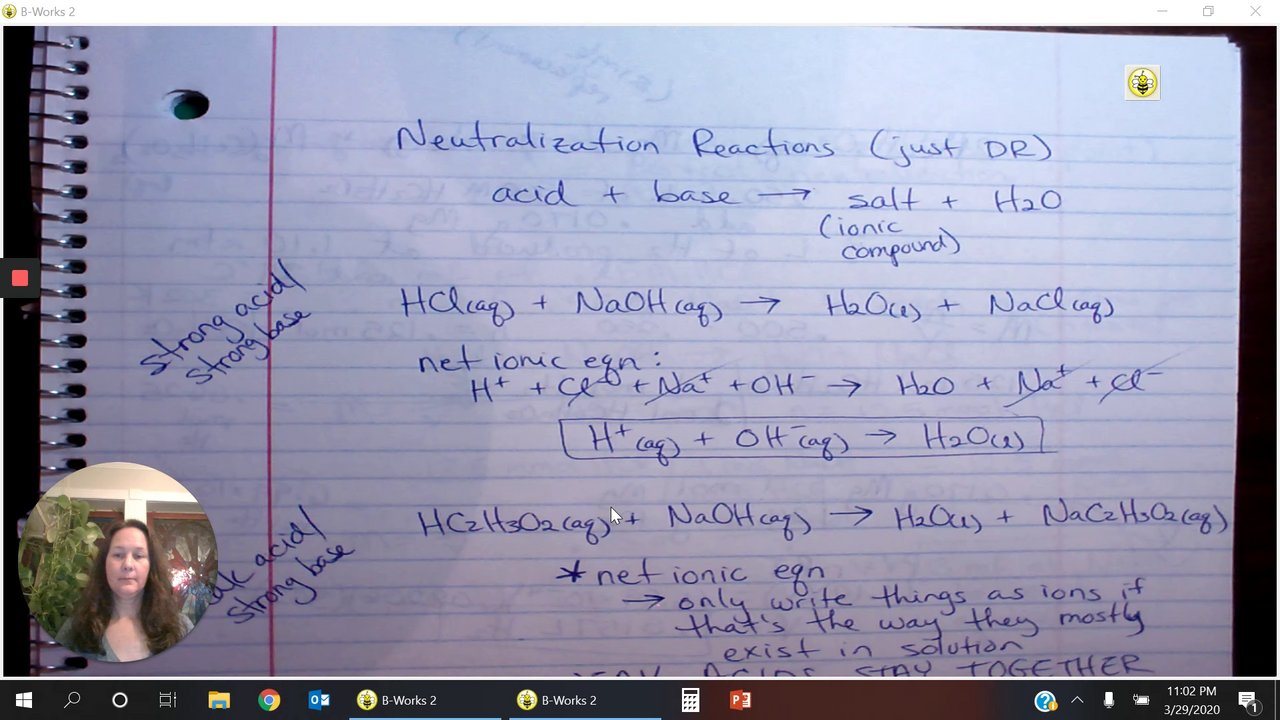 B-Works 2
Neutralization Reactions (just DR)
acid + base → salt + H2O
(ionic
compound)
strong acid/
strong base
HCl(aq) + NaOH(aq) → H2O(l) + NaCl(aq)
net ionic eqn:
H+ + Cl- + Na+ + OH- → H2O + Na+ + Cl-
H+(aq) + OH-(aq) → H2O(l)
acid/
strong base
HC2H3O2(aq) + NaOH(aq) → H2O(l) + NaC2H3O2(aq)
* net ionic eqn
→ only write things as ions if
that's the way they mostly
exist in solution
ACIDS STAY TOGETHER
B-Works 2
B-Works 2
11:02 PM
3/29/2020
1